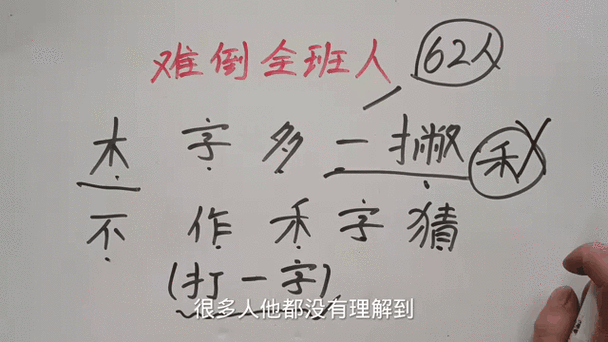 难倒全班人 62人
木字多一撇 禾
不作禾字猜
(打一字)
很多人他都没有理解到